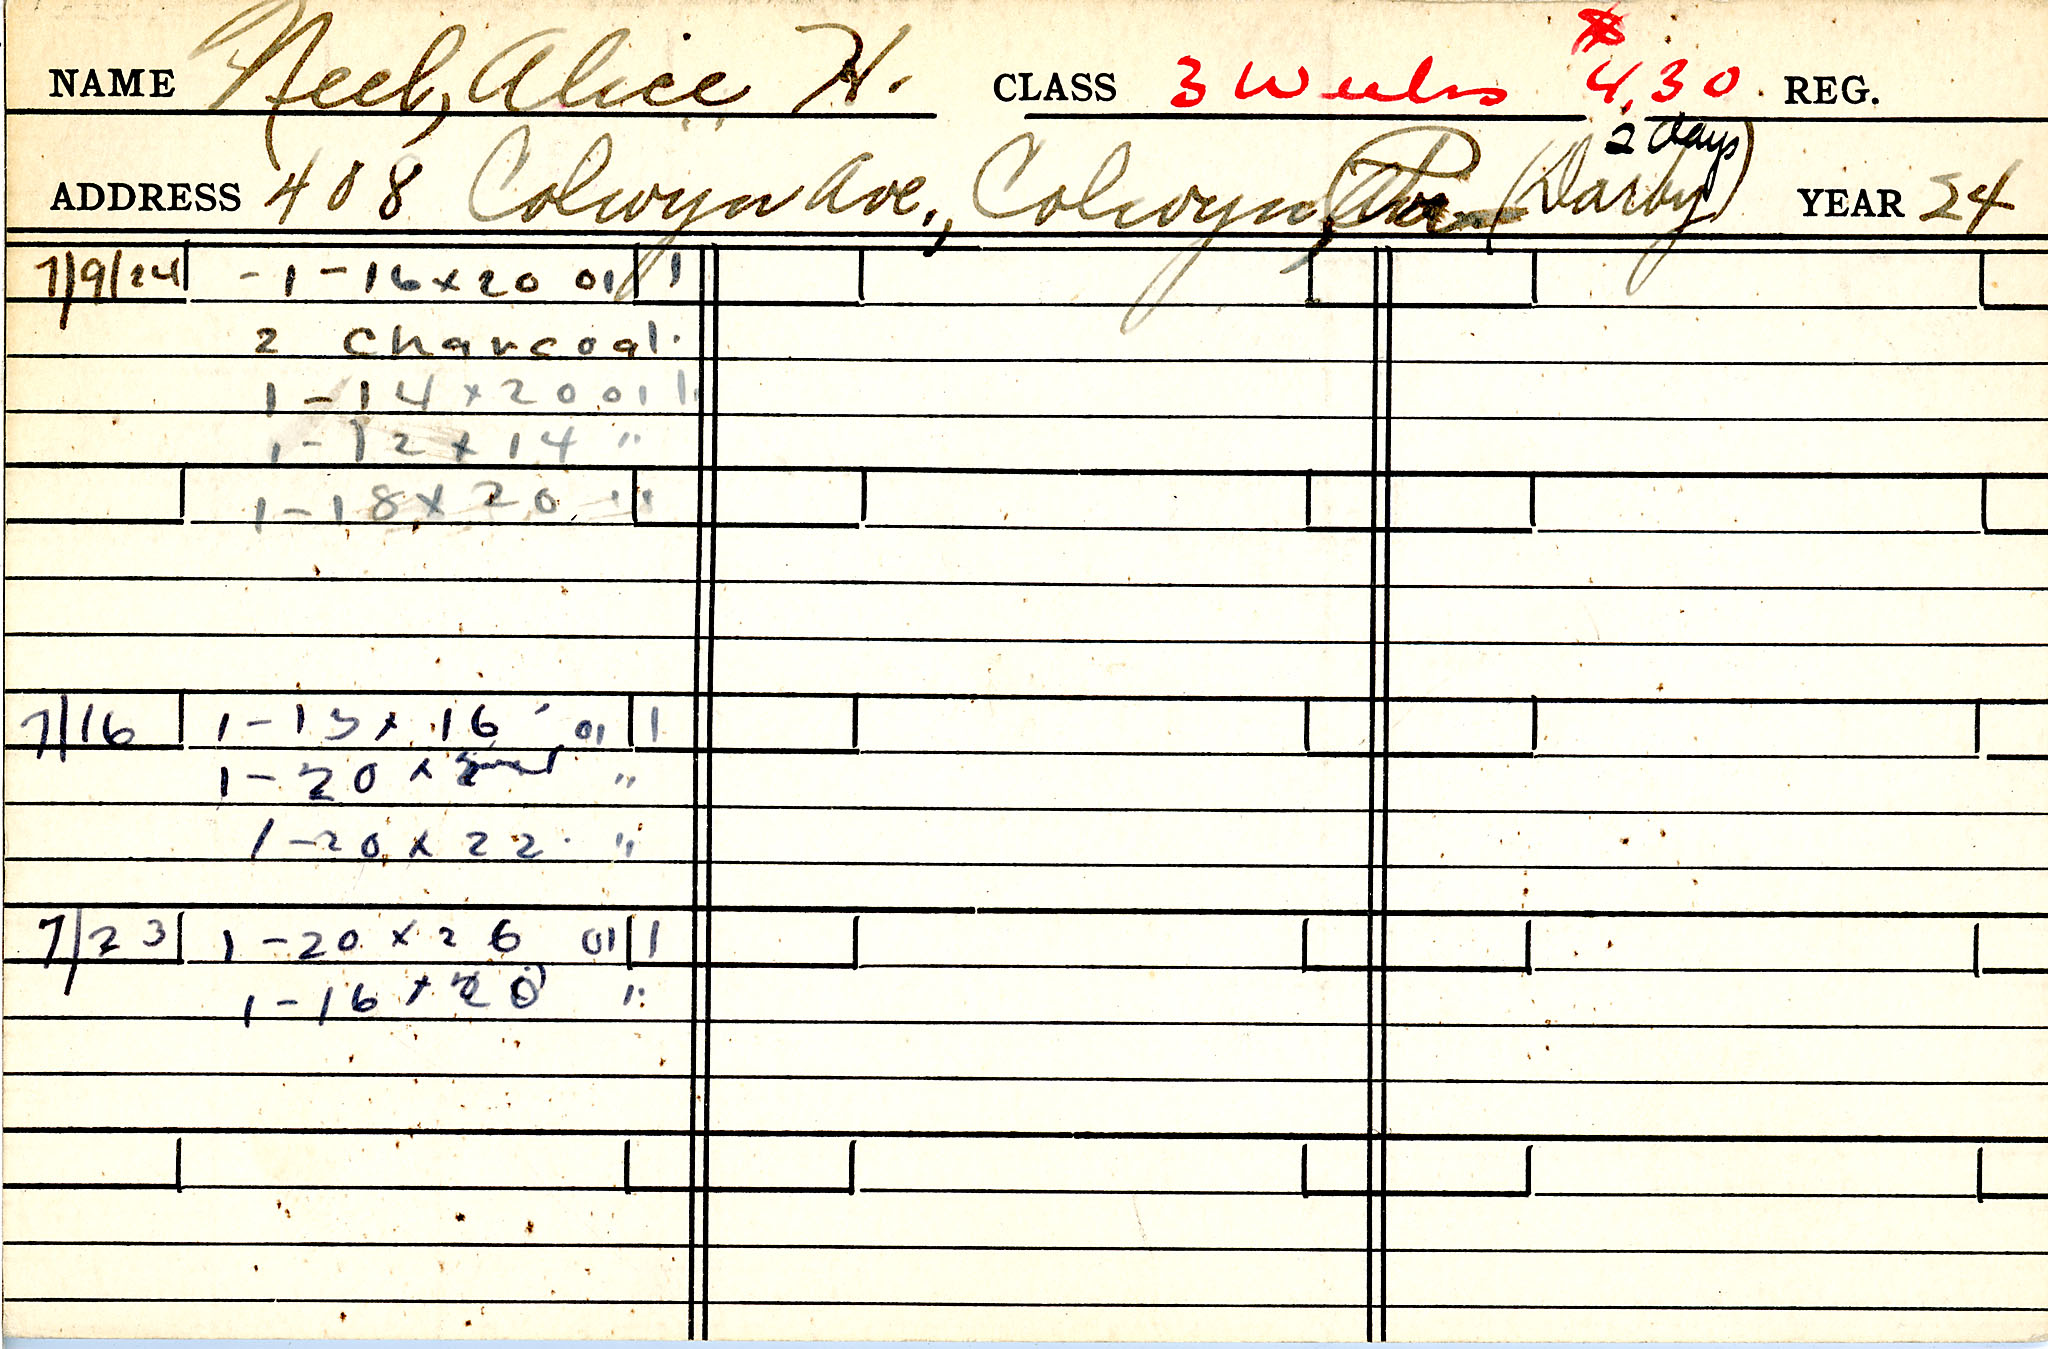 NAME Neel, Alice H. CLASS 3 Weeks $4.30 REG.
2 days
ADDRESS 408 Colwyn Ave., Colwyn, Pa. (Darby) YEAR 24
7/9/24 - 1 - 16 x 20 oil
2 Charcoal.
1 - 14 x 20 oil.
1 - 12 x 14 "
1 - 18 x 20 "
7/16 1 - 13 x 16 oil
1 - 20 x "
1 - 20 x 22 "
7/23 1 - 20 x 26 oil
1 - 16 x 20 "